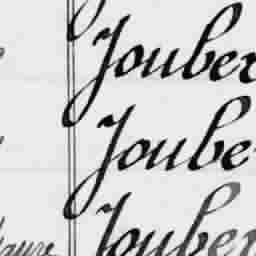 Jouber
Joube
Jouber